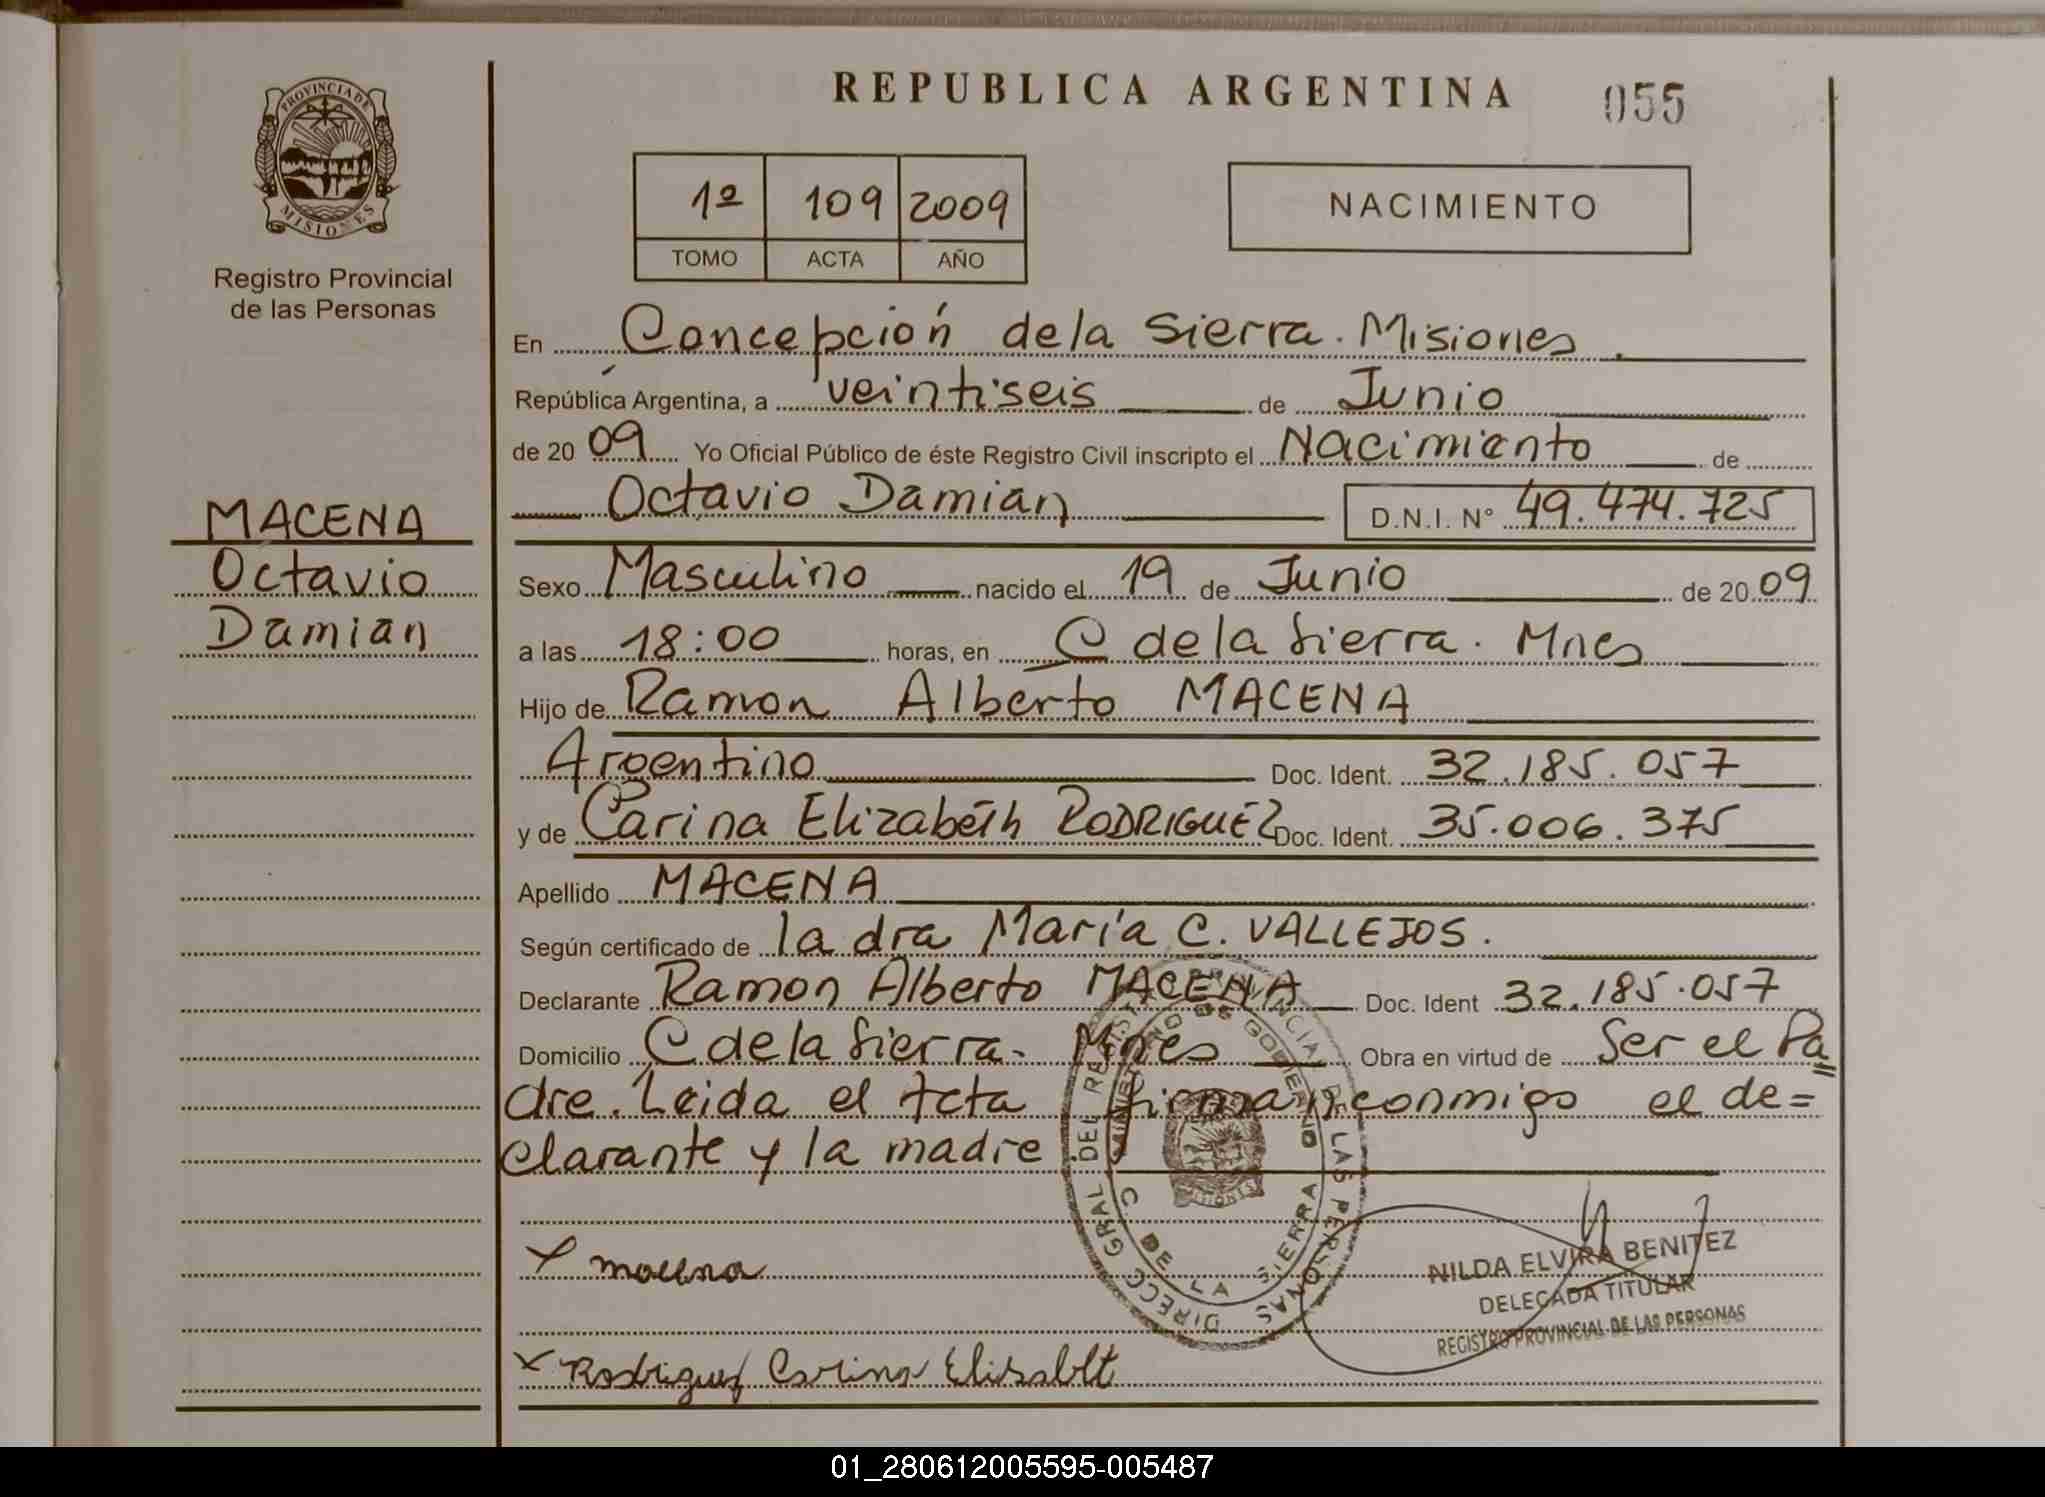 REPUBLICA ARGENTINA
055
PROVINCIA DE
MISIONES
Registro Provincial
de las Personas
1º 109 2009
TOMO ACTA AÑO
NACIMIENTO
En Concepción de la Sierra. Misiones.
República Argentina, a veintiseis de Junio
de 20 09 Yo Oficial Público de éste Registro Civil inscripto el Nacimiento de
Octavio Damian D.N.I. N° 49.474.725
MACENA
Octavio
Damian
Sexo Masculino nacido el 19 de Junio de 20 09
a las 18:00 horas, en C de la Sierra. Mnes
Hijo de Ramon Alberto MACENA
Argentino Doc. Ident. 32.185.057
y de Carina Elizabeth RODRIGUEZ Doc. Ident. 35.006.375
Apellido MACENA
Según certificado de la dra María C. VALLEJOS.
Declarante Ramon Alberto MACENA Doc. Ident 32.185.057
Domicilio C de la Sierra. Mnes Obra en virtud de Ser el Pa=
dre. Leida el Acta firman conmigo el de=
clarante y la madre
DIRECC GRAL DEL REGISTRO PROVINCIAL DE LAS PERSONAS
MINISTERIO DE GOBIERNO
C DE LA SIERRA
MISIONES
x macena
NILDA ELVIRA BENITEZ
DELEGADA TITULAR
REGISTRO PROVINCIAL DE LAS PERSONAS
x Rodriguez Carina Elisabet
01_280612005595-005487